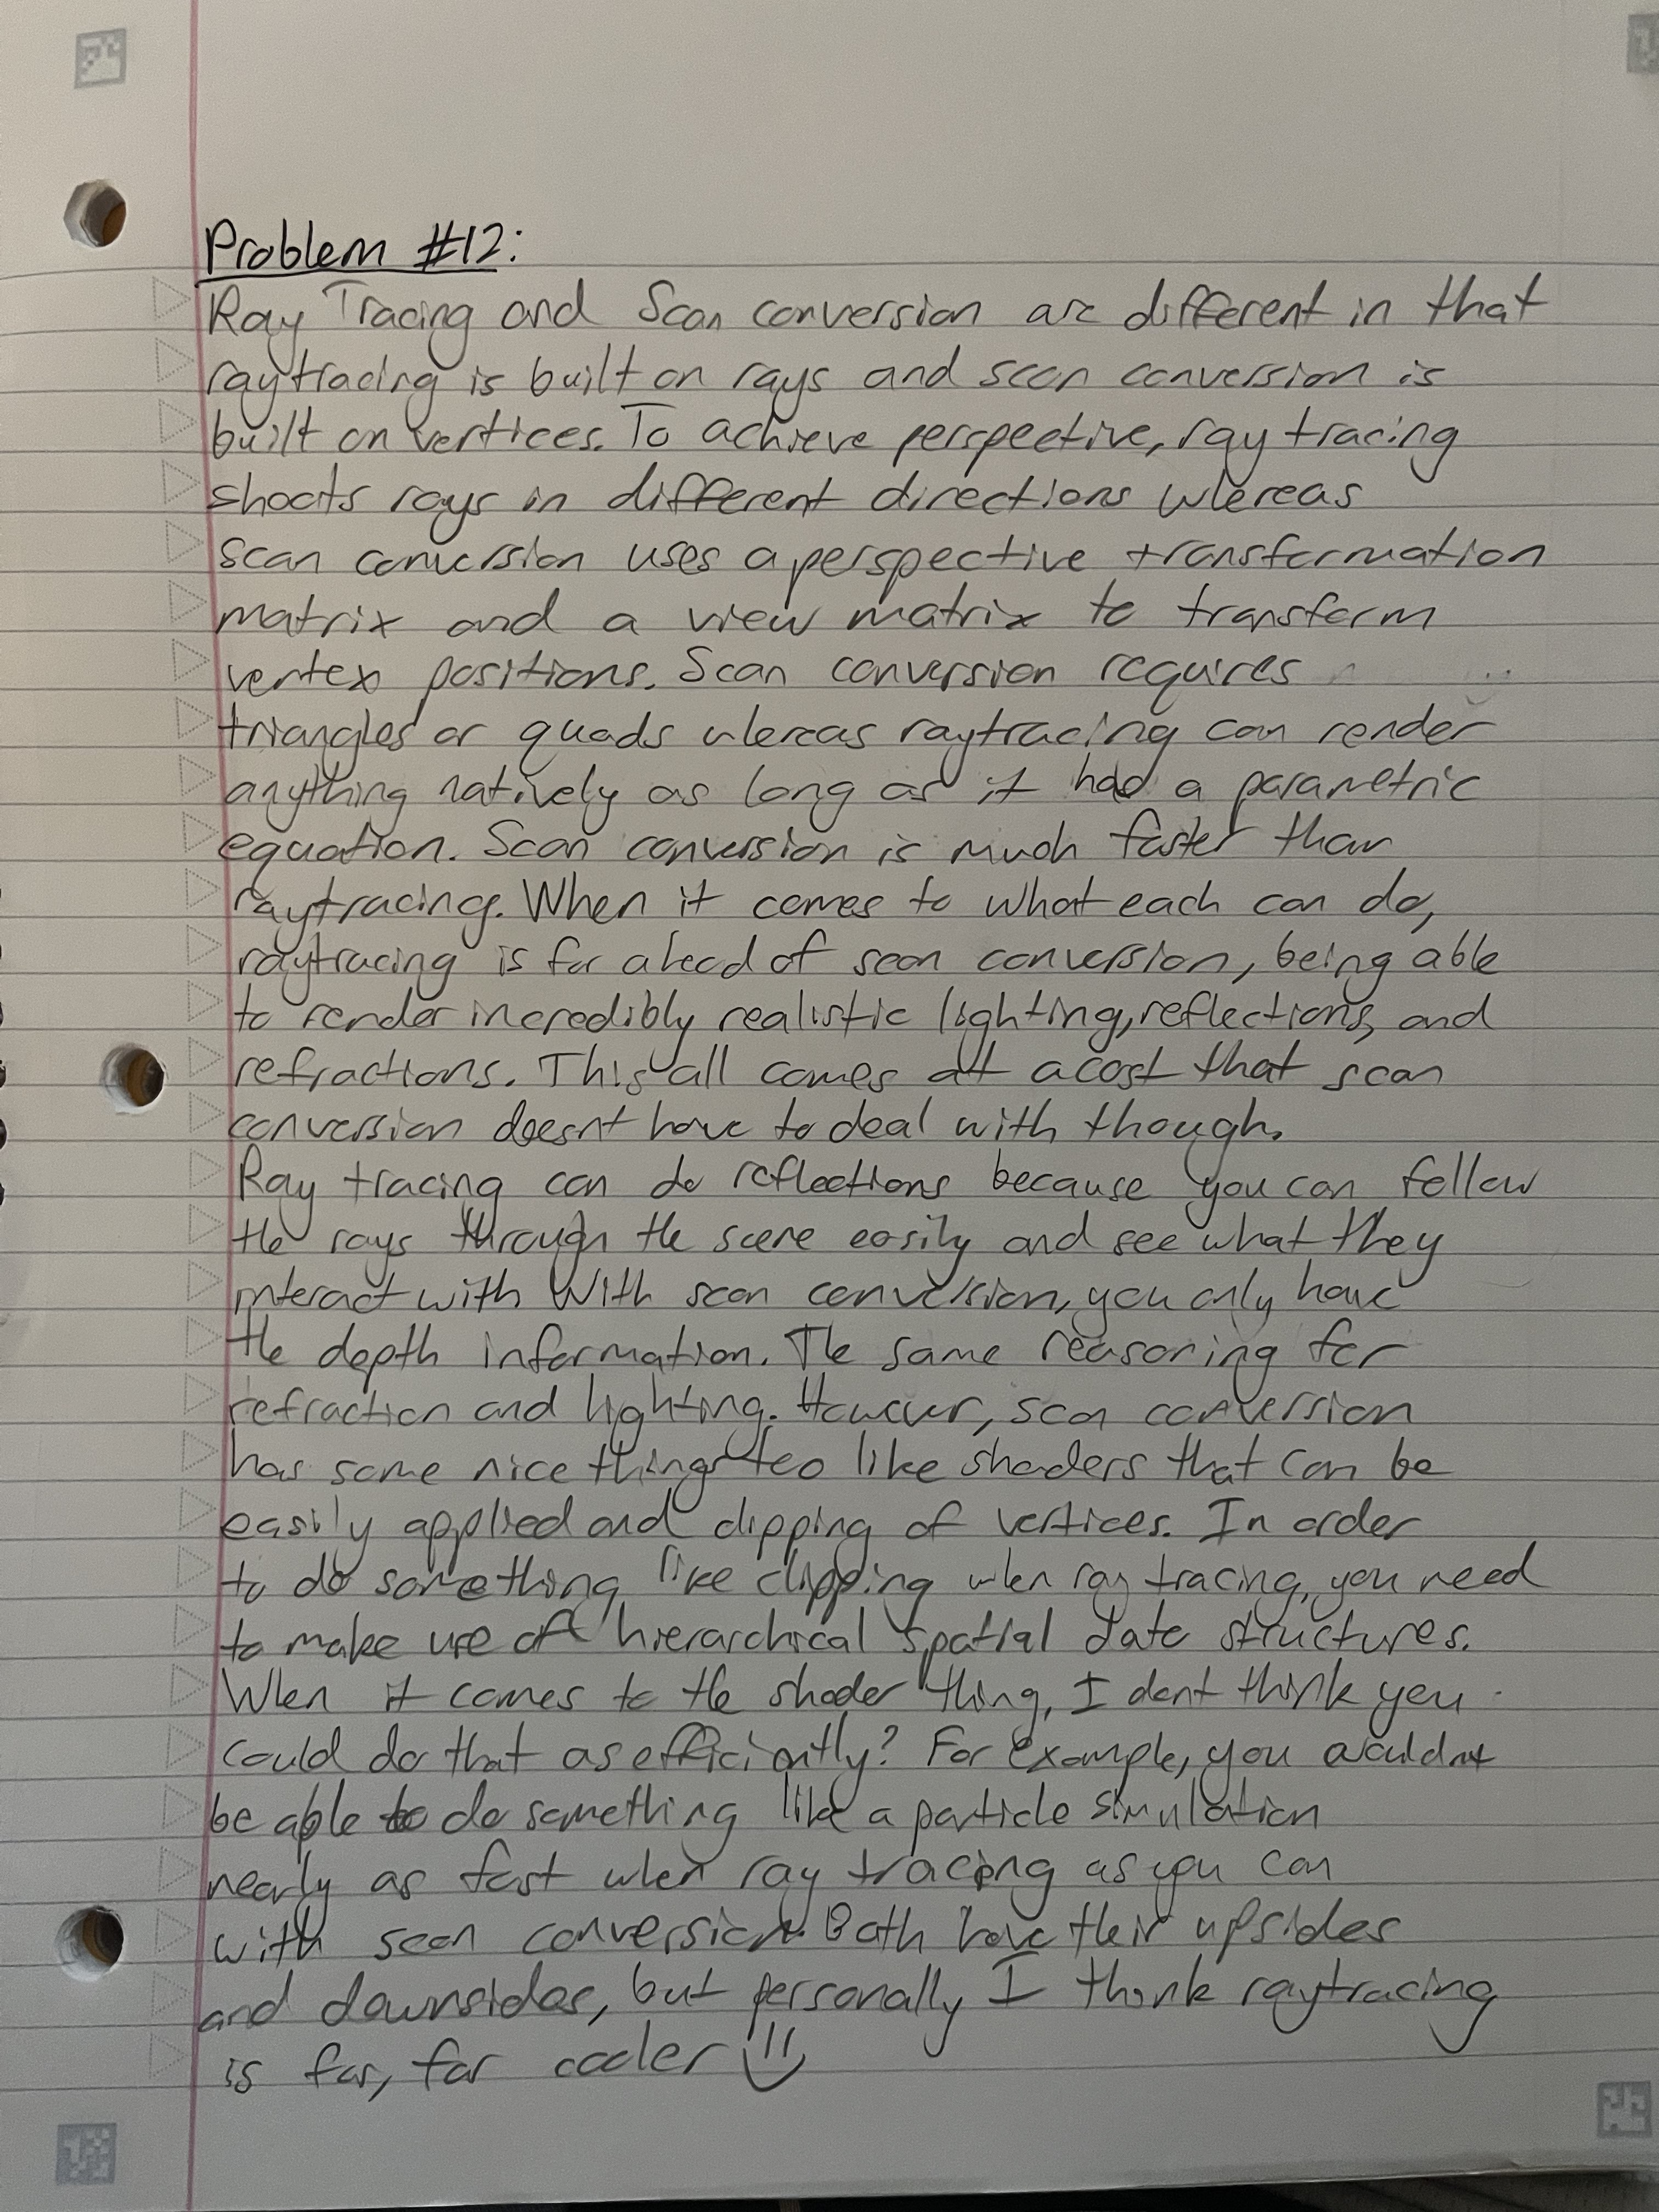 Problem #12:
Ray Tracing and Scan conversion are different in that
raytracing is built on rays and scan conversion is
built on vertices. To achieve perspective, ray tracing
shoots rays in different directions whereas
scan conversion uses a perspective transformation
matrix and a view matrix to transform
vertex positions. Scan conversion requires
triangles or quads whereas raytracing can render
anything natively as long as it had a parametric
equation. Scan conversion is much faster than
raytracing. When it comes to what each can do,
raytracing is far ahead of scan conversion, being able
to render incredibly realistic lighting, reflections, and
refractions. This all comes at a cost that scan
conversion doesnt have to deal with though.
Ray tracing can do reflections because you can follow
the rays through the scene easily and see what they
interact with With scan conversion, you only have
the depth information. The same reasoning for
refraction and lighting. However, scan conversion
has some nice things too like shaders that can be
easily applied and clipping of vertices. In order
to do something like clipping when ray tracing, you need
to make use of hierarchical spatial data structures.
When it comes to the shader thing, I dont think you
could do that as efficiently? For example, you wouldnt
be able to do something like a particle simulation
nearly as fast when ray tracing as you can
with scan conversion. Both have their upsides
and downsides, but personally I think raytracing
is far, far cooler